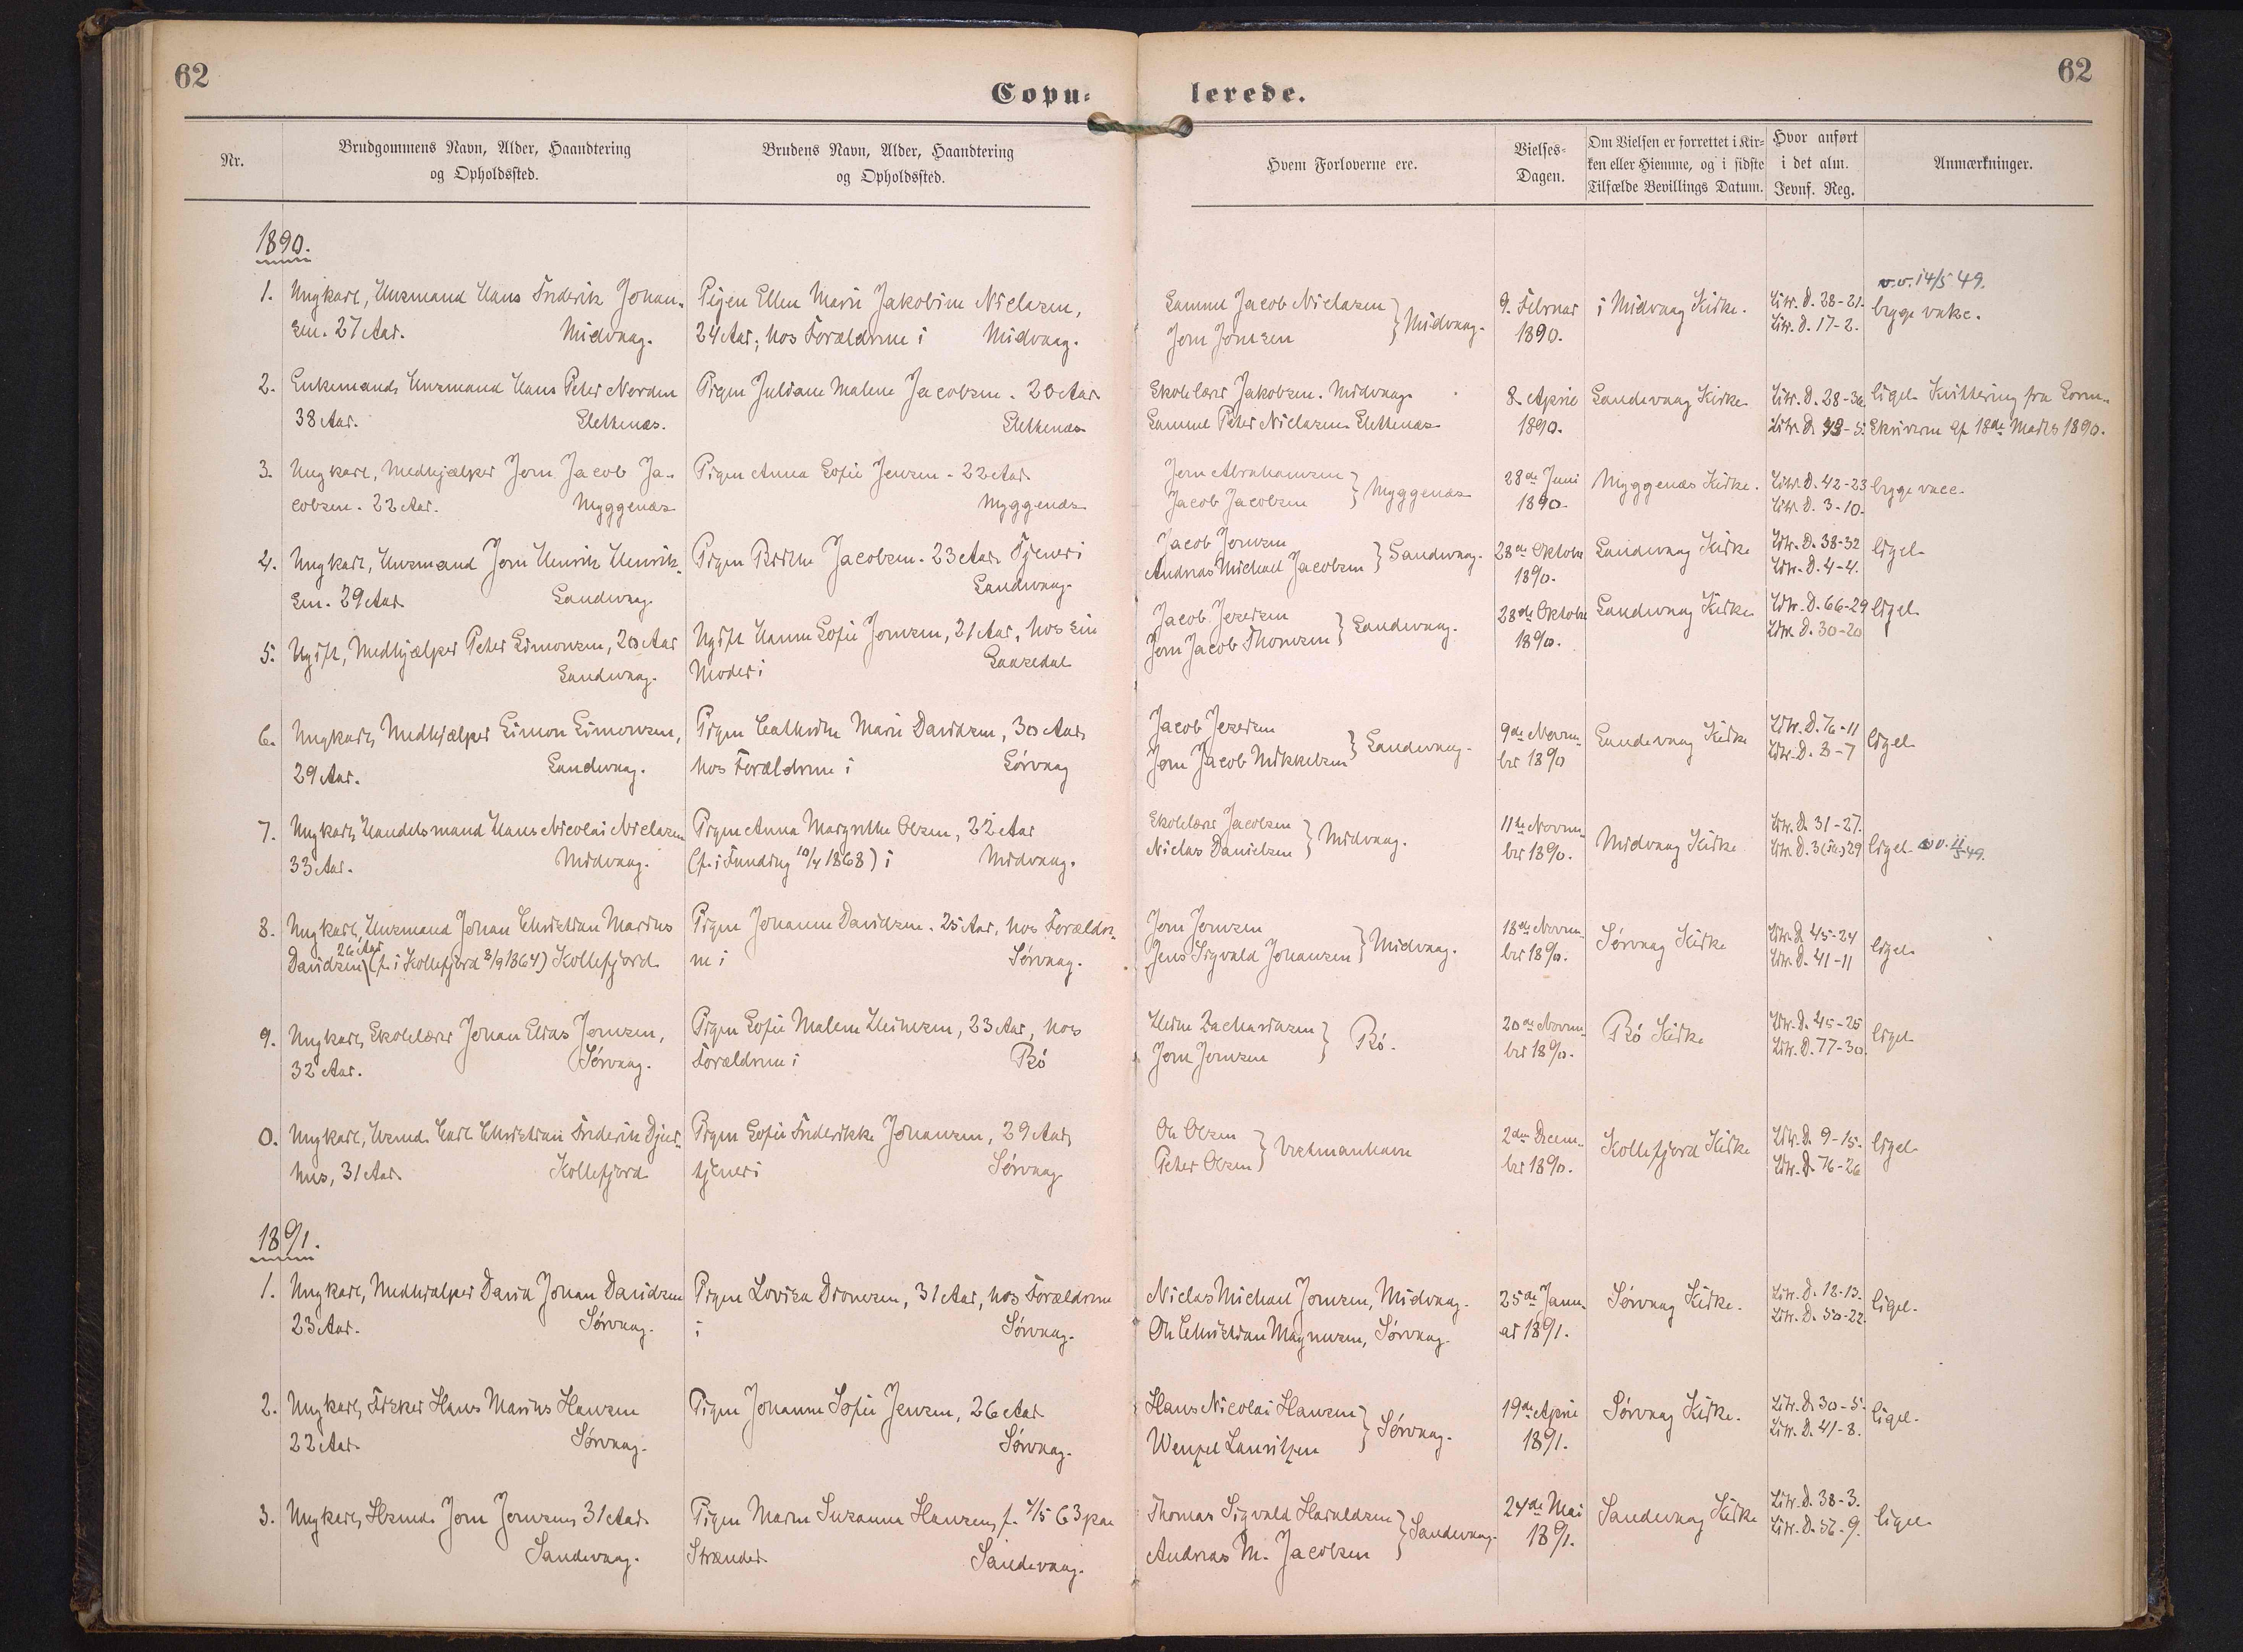 62
62
Copu=
lerede.
Nr.
Brudgommens Navn, Alder, Haandtering
og Opholdssted.
Brudens Navn, Alder, Haandtering
og Opholdssted.
Hvem Forloverne ere.
Vielses-
Dagen.
Om Vielsen er forrettet i Kir-
ken eller Hiemme, og i sidste
Tilfælde Bevillings Datum.
Hvor anført
i det alm.
Jevnf. Reg.
Anmærkninger.
1890.
1. Ungkarl, Huusmand Hans Frederik Johan-
sen. 27 Aar. Midvaag.
Pigen Ellen Marie Jakobine Nielasen,
24 Aar, hos Forældrene i Midvaag.
Samuel Jacob Nielasen
Jørn Jørnsen } Midvaag.
9. Februar
1890.
i Midvaag Kirke.
Litr. D. 28-21.
Litr. D. 17-2.
v.v. 14/5 49.
begge vakc.
2. Enkemand, Huusmand Hans Peter Norden
38 Aar. Slettenæs.
Pigen Juliane Malene Jacobsen. 20 Aar
Slettenæs
Skolelærer Jakobsen. Midvaag
Samuel Peter Nielasen Slettenæs
8. April
1890.
Sandevaag Kirke
Litr. D. 28-36.
ligel. Kvittering fra Soren-
skriveren af 18de Marts 1890.
3. Ungkarl, Medhjælper Jørn Jacob Ja-
cobsen. 22 Aar. Myggenæs
Pigen Anna Sofie Jensen. 22 Aar
Myggenæs
Jørn Abrahamsen
Jacob Jacobsen } Myggenæs
28de Juni
1890.
Myggenæs Kirke.
Litr. D. 42-23
Litr. D. 3-10.
begge vacc.
4. Ungkarl, Huusmand Jørn Henrik Henrik-
sen. 29 Aar Sandevaag
Pigen Birthe Jacobsen. 23 Aar Tjener i
Sandevaag.
Jacob Joensen
Andreas Michael Jacobsen } Sandevaag.
28de Oktober
1890.
Sandevaag Kirke
Litr. D. 38-32
Litr. D. 4-4.
ligel.
5. Ugift, Medhjælper Peter Simonsen, 20 Aar
Sandevaag.
Ugift Hanne Sofie Joensen, 21 Aar, hos sin
Moder i
Jacob Jesersen
Jørn Jacob Thomsen } Sandevaag.
28de Oktober
1890.
Sandevaag Kirke
Litr. D. 66-29
Litr. D. 30-20
ligel.
6. Ungkarl, Medhjælper Simon Simonsen,
29 Aar. Sandevaag.
Pigen Cathrine Marie Davidsen, 30 Aar,
hos Forældrene i Sórvaag
Jacob Jesersen
Jørn Jacob Mikkelsen } Sandevaag.
9de Novem-
ber 1890
Sandevaag Kirke
Litr. D. 76-11
Litr. D. 3-7
ligel.
7. Ungkarl, Handelsmand Hans Nicolai Nielasen
33 Aar. Midvaag.
Pigen Anna Margrethe Olsen, 22 Aar
(f. i Funding 10/4 1868) i Midvaag.
Skolelærer Jacobsen
Niclas Danielsen } Midvaag.
11te Novem-
ber 1890.
Midvaag Kirke
Litr. D. 31-27.
ligel. v.v. 11/5 49.
8. Ungkarl, Huusmand Johan Christian Marius
26 Aar
Davidsen (f. i Kollefjord 3/9 1864) Kollefjord.
Pigen Johanne Davidsen. 25 Aar, hos Forældre-
ne i Sórvaag.
Jørn Joensen
Jens Sigvald Johansen } Midvaag.
18de Novem-
ber 1890.
Sórvaag Kirke
Litr. D. 45-24
Litr. D. 41-11
ligel.
9. Ungkarl, Skolelærer Johan Elias Joensen,
32 Aar. Sórvaag.
Pigen Sofie Malene Heinesen, 23 Aar, hos
Forældrene i Bó
Heine Zachariasen
Jørn Joensen } Bó.
20de Novem-
ber 1890.
Bó Kirke
Litr. D. 45-25
Litr. D. 77-30.
ligel.
0. Ungkarl, Husmd. Carl Christian Frederik Djur-
huus, 31 Aar. Kollefjord
Pigen Sofie Frederikke Johansen, 29 Aar,
tjener i Sórvaag
Ole Olsen
Peter Olsen } Vestmanhavn
2den Decem-
ber 1890.
Kollefjord Kirke
Litr. D. 9-15.
Litr. D. 76-26
ligel.
1891.
1. Ungkarl, Medhjælper David Johan Davidsen
23 Aar. Sórvaag.
Pigen Lovisa Dionesen, 31 Aar, hos Forældrene
i Sórvaag.
Niclas Michael Joensen, Midvaag.
Ole Christian Magnusen, Sórvaag.
25de Janu-
ar 1891.
Sórvaag Kirke.
Litr. D. 18-13.
Litr. D. 50-22.
ligel.
2. Ungkarl, Fisker Hans Marius Hansen
22 Aar. Sórvaag.
Pigen Johanne Sofie Jensen, 26 Aar
Sórvaag.
Hans Nicolai Hansen
Wenzel Lauritzen } Sórvaag.
19de April
1891.
Sórvaag Kirke.
Litr. D. 30-5.
Litr. D. 41-8.
ligel.
3. Ungkarl, Husmd. Jørn Joensen, 31 Aar.
Sandevaag.
Pigen Maren Susanne Hansen, f. 4/5 63 paa
Strænder Sandevaag.
Thomas Sigvald Haraldsen
Andreas M. Jacobsen } Sandevaag.
24de Mai
1891.
Sandevaag Kirke
Litr. D. 38-3.
Litr. D. 56-9.
ligel.